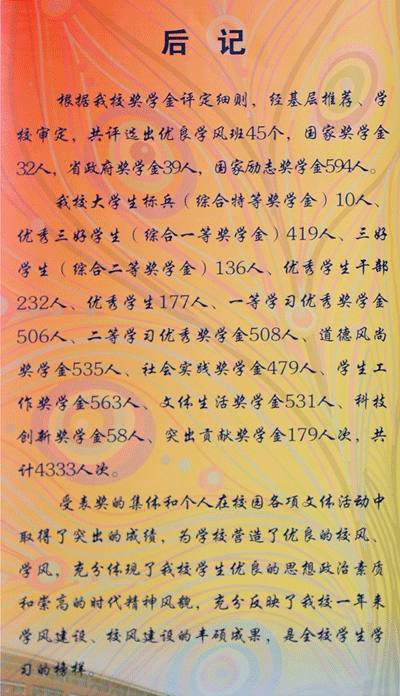 后 记
根据我校奖学金评定细则，经基层推荐、学
校审定，共评选出优良学风班45个，国家奖学金
32人，省政府奖学金39人，国家励志奖学金594人。
我校大学生标兵（综合特等奖学金）10人、
优秀三好学生（综合一等奖学金）419人、三好
学生（综合二等奖学金）136人、优秀学生干部
232人、优秀学生177人、一等学习优秀奖学金
506人、二等学习优秀奖学金508人、道德风尚
奖学金535人、社会实践奖学金479人、学生工
作奖学金563人、文体生活奖学金531人、科技
创新奖学金58人、突出贡献奖学金179人次，共
计4333人次。
受表奖的集体和个人在校园各项文体活动中
取得了突出的成绩，为学校营造了优良的校风、
学风，充分体现了我校学生优良的思想政治素质
和崇高的时代精神风貌，充分反映了我校一年来
学风建设、校风建设的丰硕成果，是全校学生学
习的榜样。